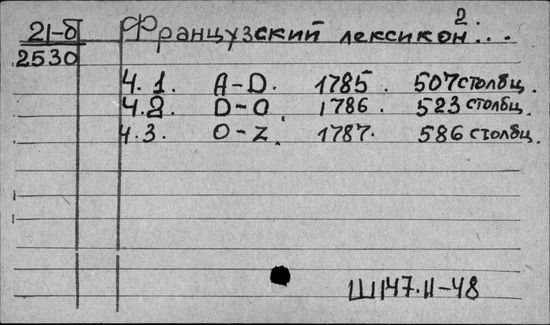 2.
21-б Французский лексикон...
2530
Ч. 1. A-D. 1785. 507 столбц.
Ч. 2. D-O. 1786. 523 столбц.
Ч. 3. O-Z. 1787. 586 столбц.
Ш147.II-48